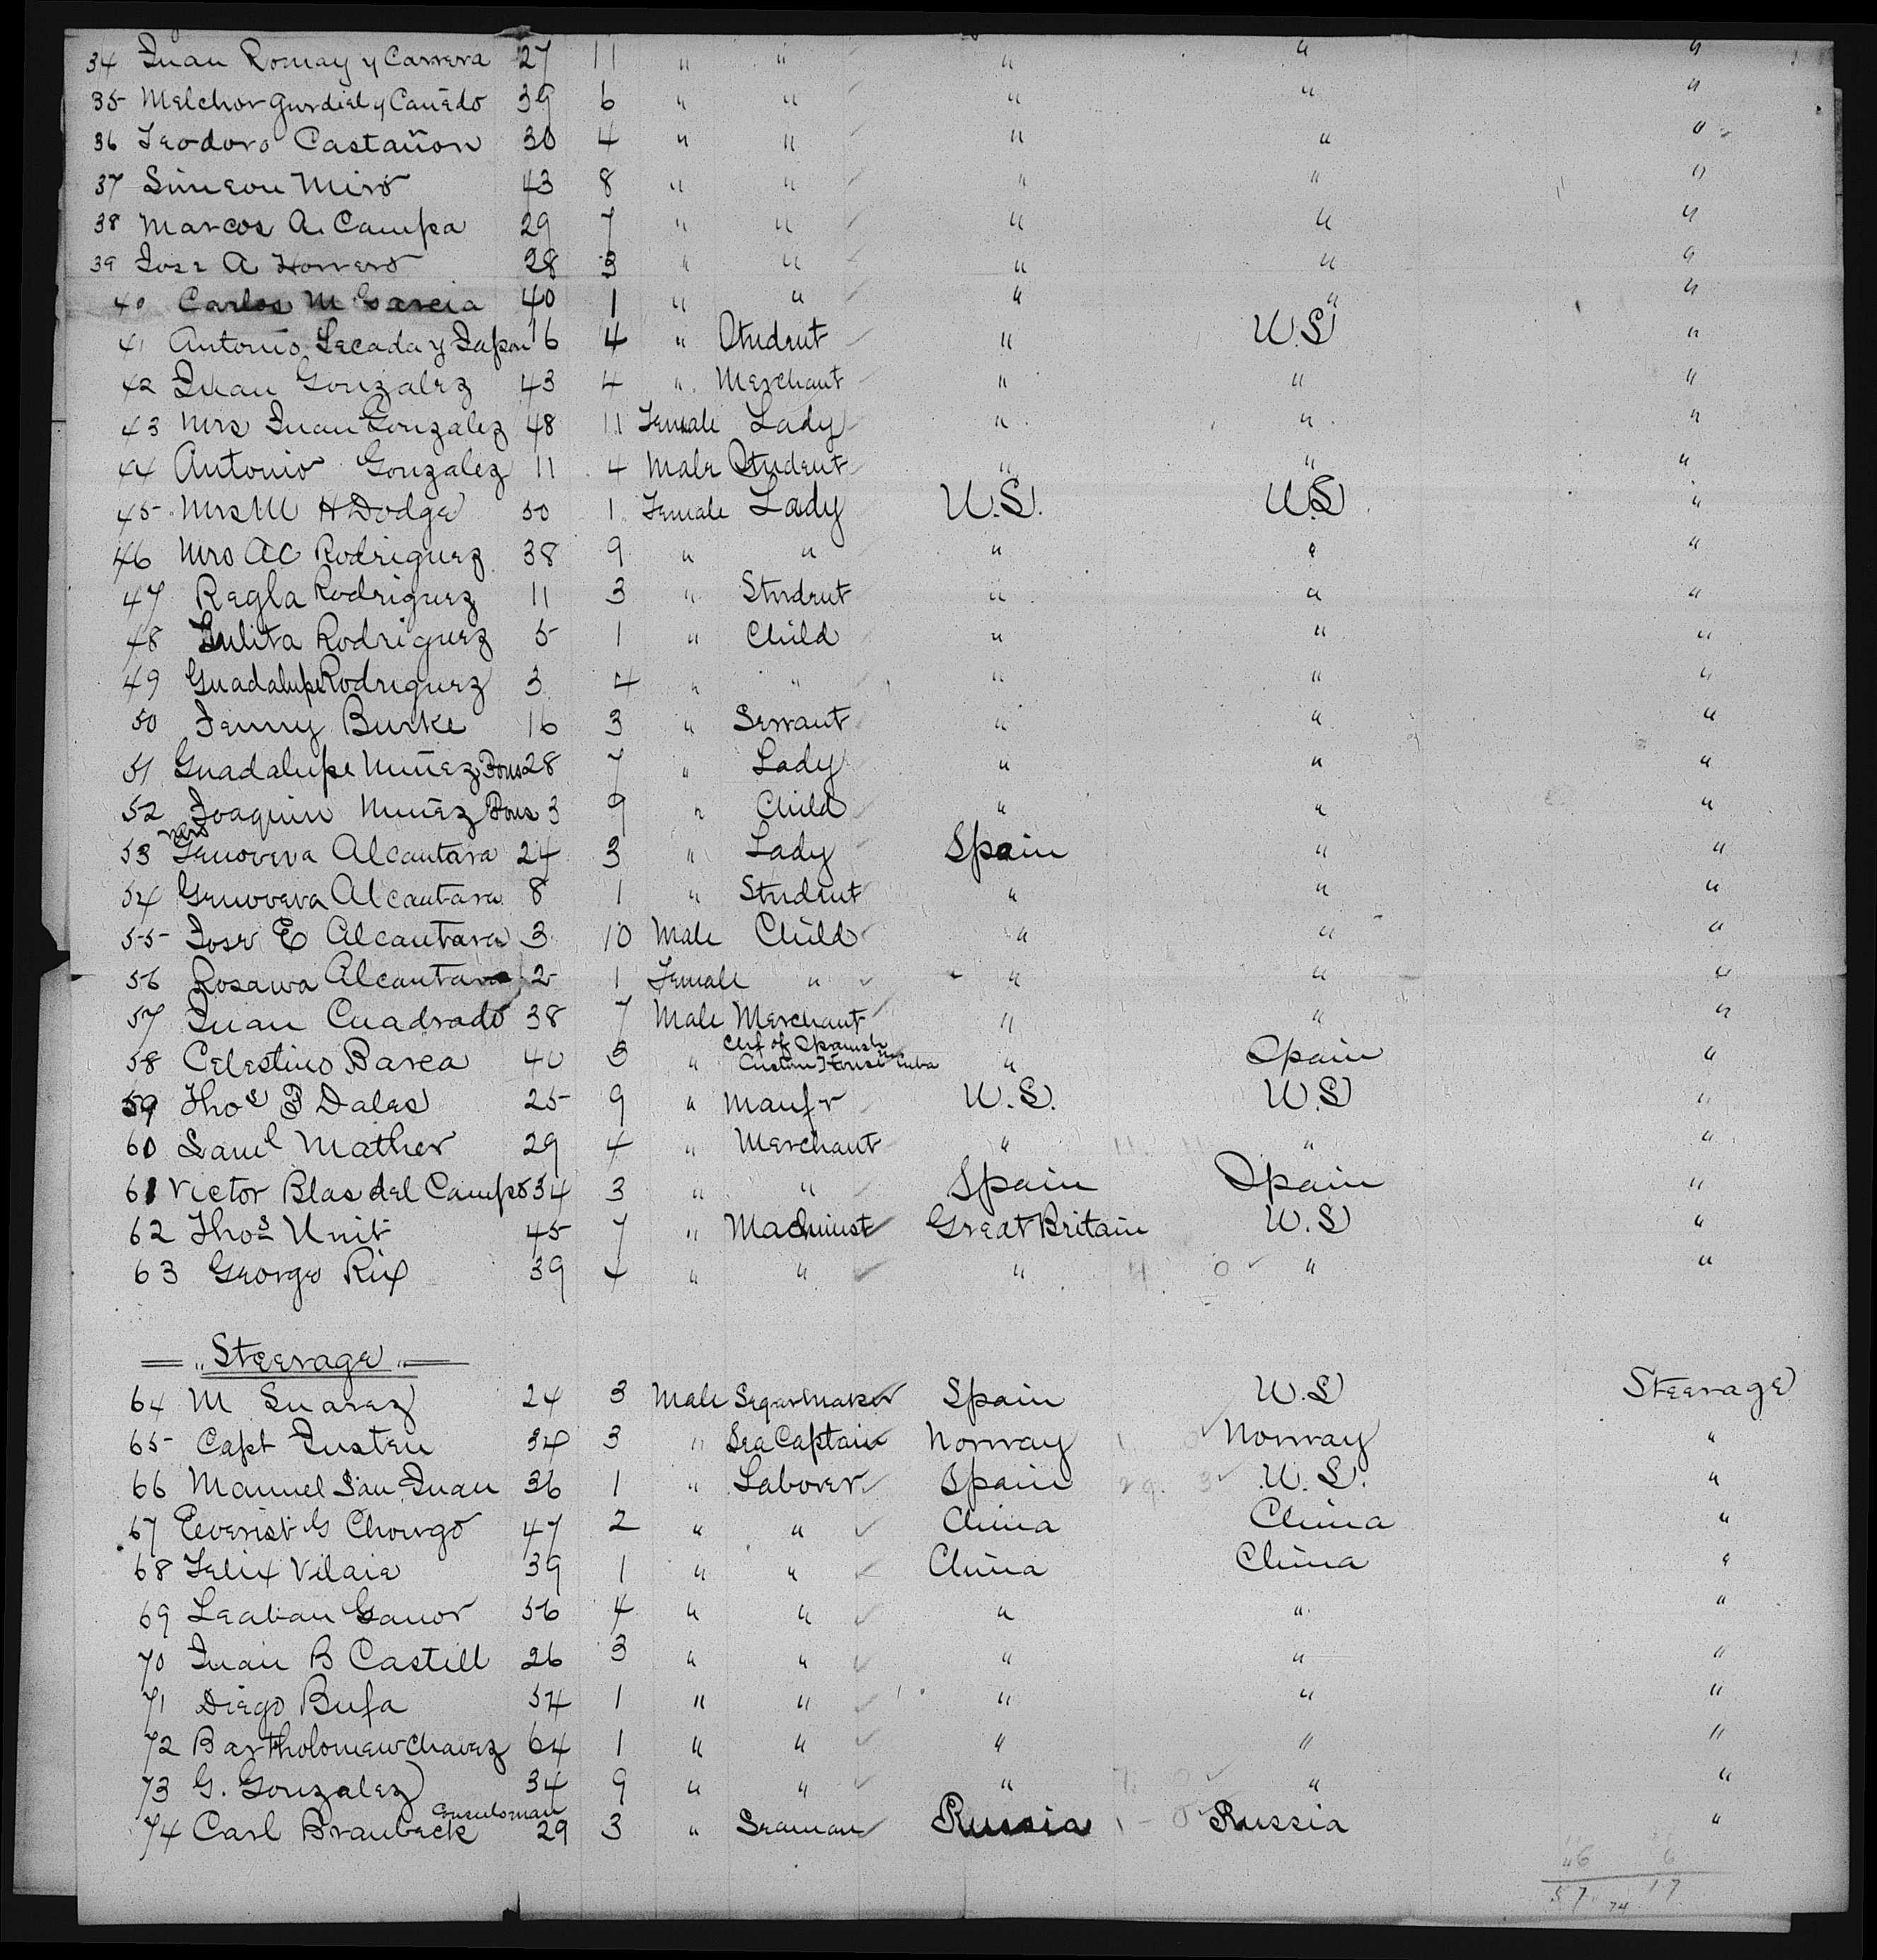 34 Juan Romay y Carrera 27 11 " " " " "
35 Melchor Gurdiel y Cañedo 39 6 " " " " "
36 Teodoro Castañon 30 4 " " " " "
37 Simeon Miro 43 8 " " " " "
38 Marcos A. Campa 29 7 " " " " "
39 Jose A Horrero 28 3 " " " " "
40 Carlos M Garcia 40 1 " " " " "
41 Antonio Lecada y 16 4 " Student " U.S "
42 Juan Gonzalez 43 4 " Merchant " " "
43 Mrs Juan Gonzalez 48 11 Female Lady " " "
44 Antonio Gonzalez 11 4 Male Student " " "
45 Mrs M H Dodge 50 1 Female Lady U.S. U.S "
46 Mrs AC Rodriguez 38 9 " " " " "
47 Regla Rodriguez 11 3 " Student " " "
48 Lulita Rodriguez 5 1 " Child " " "
49 Guadalupe Rodriguez 3 4 " " " " "
50 Jenny Burke 16 3 " Servant " " "
51 Guadalupe Muñez Pons 28 7 " Lady " " "
52 Joaquin Muñez Pons 3 9 " Child " " "
53 Mrs Genoveva Alcantara 24 3 " Lady Spain " "
54 Genoveva Alcantara 8 1 " Student " " "
55 Jose E Alcantara 3 10 Male Child " " "
56 Rosawa Alcantara 2 1 Female " " " "
57 Juan Cuadrado 38 7 Male Merchant " " "
58 Celestino Barea 40 3 " Chf of Spanish Custom House in Cuba " Spain "
59 Thos P Dales 25 9 " Manfr U.S. U.S "
60 Saml Mather 29 4 " Merchant " " "
61 Victor Blas del Campo 34 3 " " Spain Spain "
62 Thos Unit 45 7 " Machinist Great Britain U.S "
63 George Rix 39 4 " " " 4 0 " "
" Steerage "
64 M Suarez 24 3 Male Segarmaker Spain U.S Steerage
65 Capt Justen 34 3 " Sea Captain Norway 1 0 Norway "
66 Manuel San Juan 36 1 " Laborer Spain 29 3 U.S. "
67 Everist G Choingo 47 2 " " China China "
68 Felix Vilaie 39 1 " " China China "
69 Leaban Ganor 56 4 " " " " "
70 Juan B Castill 26 3 " " " " "
71 Diego Bufa 54 1 " " " " "
72 Bartholomew Chavez 64 1 " " " " "
73 G. Gonzalez 34 9 " " " 7 0 " "
74 Carl Branbeck Consulsman 29 3 " Seaman Russia 1 - 0 Russia "
46 6
57 74 17